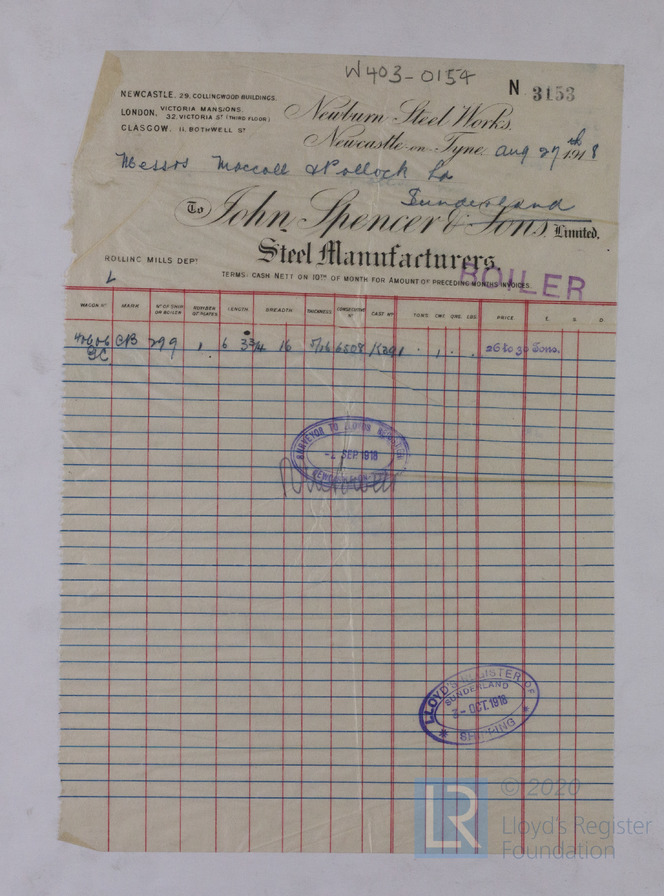 W403-0154
N 3153
NEWCASTLE. 29, COLLINGWOOD BUILDINGS.
LONDON. VICTORIA MANSIONS.
32, VICTORIA ST (THIRD FLOOR)
GLASGOW. 11, BOTHWELL ST
Newburn Steel Works,
Newcastle-on-Tyne, Aug 27th 1918
Messrs Maccoll & Pollock Ld
Sunderland
To John Spencer & Sons, Limited.
Steel Manufacturers.
ROLLING MILLS DEPT
TERMS: CASH NETT ON 10TH OF MONTH FOR AMOUNT OF PRECEDING MONTHS INVOICES.
BOILER
WAGON No MARK No OF SHIP OR BOILER NUMBER OF PLATES LENGTH BREADTH THICKNESS CONSECUTIVE No CAST No TONS. CWT. QRS. LBS. PRICE £. S. D.
CB 299 1 6 3 3/4 16 5/16 6508 1 26 to 30 Tons.
SURVEYOR TO LLOYDS REGISTER
-2 SEP. 1918
NEWCASTLE-ON-TYNE
LLOYD'S REGISTER OF
SUNDERLAND
3-OCT. 1918
* SHIPPING *
LR
© 2020
Lloyd's Register
Foundation